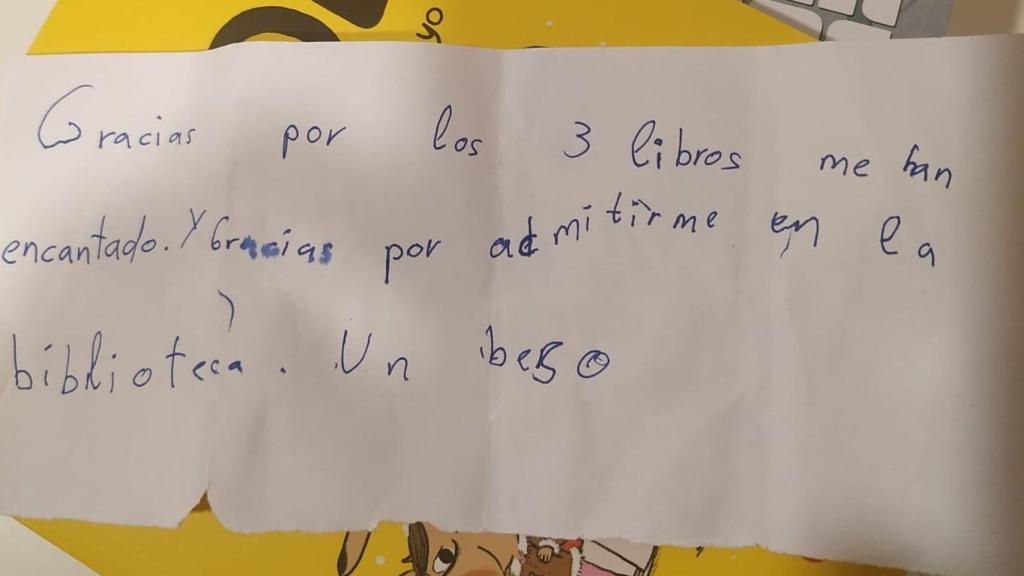 yo
Gracias por los 3 libros me han
encantado. Y Gracias por admitirme en la
biblioteca. Un beso